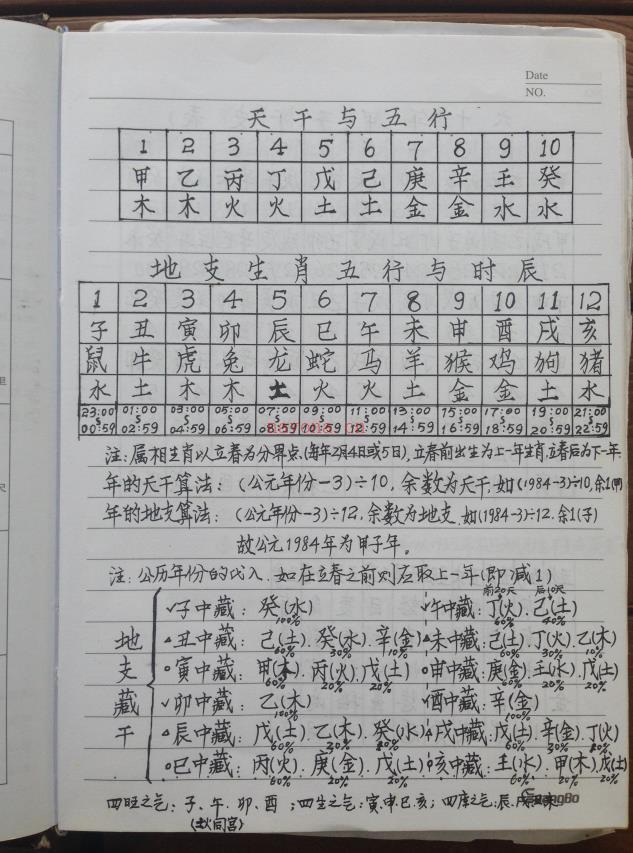 Date
NO.
天干与五行
1 2 3 4 5 6 7 8 9 10
甲 乙 丙 丁 戊 己 庚 辛 壬 癸
木 木 火 火 土 土 金 金 水 水
地支生肖五行与时辰
1 2 3 4 5 6 7 8 9 10 11 12
子 丑 寅 卯 辰 巳 午 未 申 酉 戌 亥
鼠 牛 虎 兔 龙 蛇 马 羊 猴 鸡 狗 猪
水 土 木 木 土 火 火 土 金 金 土 水
23:00 01:00 03:00 05:00 07:00 09:00 11:00 13:00 15:00 17:00 19:00 21:00
00:59 02:59 04:59 06:59 08:59 10:59 12:59 14:59 16:59 18:59 20:59 22:59
注:属相生肖以立春为分界点,(每年2月4日或5日),立春前出生为上一年生肖,立春后为下一年.
年的天干算法:(公元年份-3)÷10,余数为天干,如(1984-3)÷10,余1(甲)
年的地支算法:(公元年份-3)÷12,余数为地支,如(1984-3)÷12.余1(子)
故公元1984年为甲子年。
注:公历年份的代入.如在立春之前则应取上一年(即减1)
前20天 后10天
地支藏干
✓子中藏:癸(水) ✓午中藏:丁(火).己(土)
100% 60% 40%
▵丑中藏:己(土).癸(水).辛(金) ▵未中藏:己(土).丁(火).乙(木)
60% 30% 10% 60% 30% 10%
○寅中藏:甲(木).丙(火).戊(土) ○申中藏:庚(金).壬(水).戊(土)
60% 20% 20% 60% 20% 20%
✓卯中藏:乙(木) ✓酉中藏:辛(金)
100% 100%
▵辰中藏:戊(土).乙(木).癸(水) ▵戌中藏:戊(土).辛(金).丁(火)
60% 30% 60% 30%
○巳中藏:丙(火).庚(金).戊(土) ○亥中藏:壬(水).甲(木).戊(土)
60% 20% 20% 60% 20% 20%
四旺之气:子、午、卯、酉;四生之气:寅.申.巳.亥;四库之气:辰、戌丑未